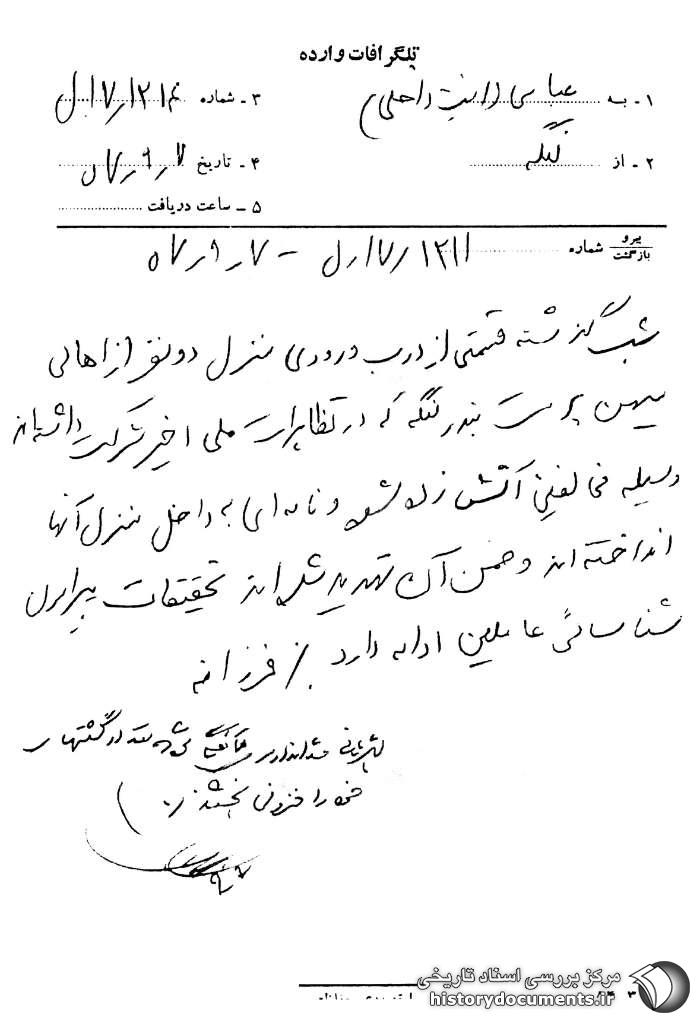 تلگرافات وارده
۱ - به عباسی (امنیت داخلی)
۳ - شماره
۲ - از لنگه
۴ - تاریخ ۷ر۹ر۵۷
۵ - ساعت دریافت
پیرو
بازگشت
شماره ۱۲۱۱ر۱۷ر ل - ۷ر۹ر۵۷
شب گذشته قسمتی از درب ورودی منزل دو نفر از اهالی
میهن پرست بندر لنگه که در تظاهرات ملی اخیر شرکت داشته‌اند
وسیله مخالفین آتش زده شده و نامه‌ای به داخل منزل آنها
انداخته اند و ضمن آن تهدید شده اند تحقیقات برای
شناسائی عاملین ادامه دارد. فرزانه
خود را فزونی بخشند
مرکز بررسی اسناد تاریخی
historydocuments.ir